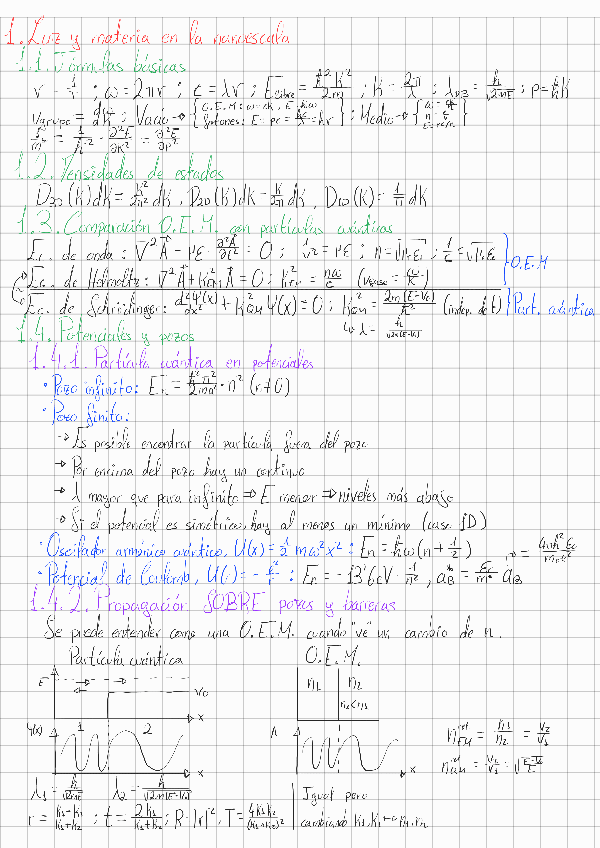 1. Luz y materia en la nanoescala
1.1. Fórmulas básicas
ν = 1/τ ; ω = 2πν ; c = λν ; E_libre = ħ²k²/2m ; k = 2π/λ ; λ_DB = h/√2mE ; p = ħk
v_grupo = dω/dk ; Vacío → { O.E.M: ω = ck, E = ħω
fotones: E = pc = hc/λ = hν } ; Medio →
1/m* = 1/ħ² · ∂²E/∂k² = ∂²E/∂p²
1.2. Densidades de estados
D₃D(k)dk = k²/2π² dk, D₂D(k)dk = k/2π dk, D₁D(k) = 1/π dk
1.3. Comparación O.E.M. con partículas cuánticas
Ec. de onda: ∇²A - με ∂²A/∂t² = 0 ; 1/v² = με ; n = √μrεr ; 1/c = √μ₀ε₀
O.E.M
Ec. de Helmoltz: ∇²A + k²EM A = 0 ; kEM = nω/c (v_fase = ω/k)
Ec. de Schrödinger: d²Ψ(x)/dx² + k²QM Ψ(x) = 0 ; k²QM = 2m(E-V₀)/ħ² (indep. de t)
Part. cuántica
↳ λ = h/√2m(E-V₀)
1.4. Potenciales y pozos
1.4.1. Partícula cuántica en potenciales
• Pozo infinito: En = ħ²π²/2ma² · n² (n≠0)
• Pozo finito:
→ Es posible encontrar la partícula fuera del pozo
→ Por encima del pozo hay un continuo
→ λ mayor que para infinito ⇒ E menor ⇒ niveles más abajo
→ Si el potencial es simétrico, hay al menos un mínimo (caso 1D)
• Oscilador armónico cuántico, U(x) = 1/2 mω²x² : En = ħω(n + 1/2)
• Potencial de Coulomb, : En = -13'6eV · 1/n²
1.4.2. Propagación SOBRE pozos y barreras
Se puede entender como una O.E.M. cuando "ve" un cambio de n.
Partícula cuántica
O.E.M.
E
V₀
x
n₁
n₂
n₂<n₁
Ψ(x)
1
2
x
A
x
n rel EM = n₁/n₂ = v₂/v₁
λ₁ = h/√2mE
λ₂ = h/√2m(E-V₀)
t = 2k₁/k₁+k₂ ; R = |r|², T = 4k₁k₂/(k₁+k₂)²
Igual pero
cambiando k₁, k₂ → n₁, n₂